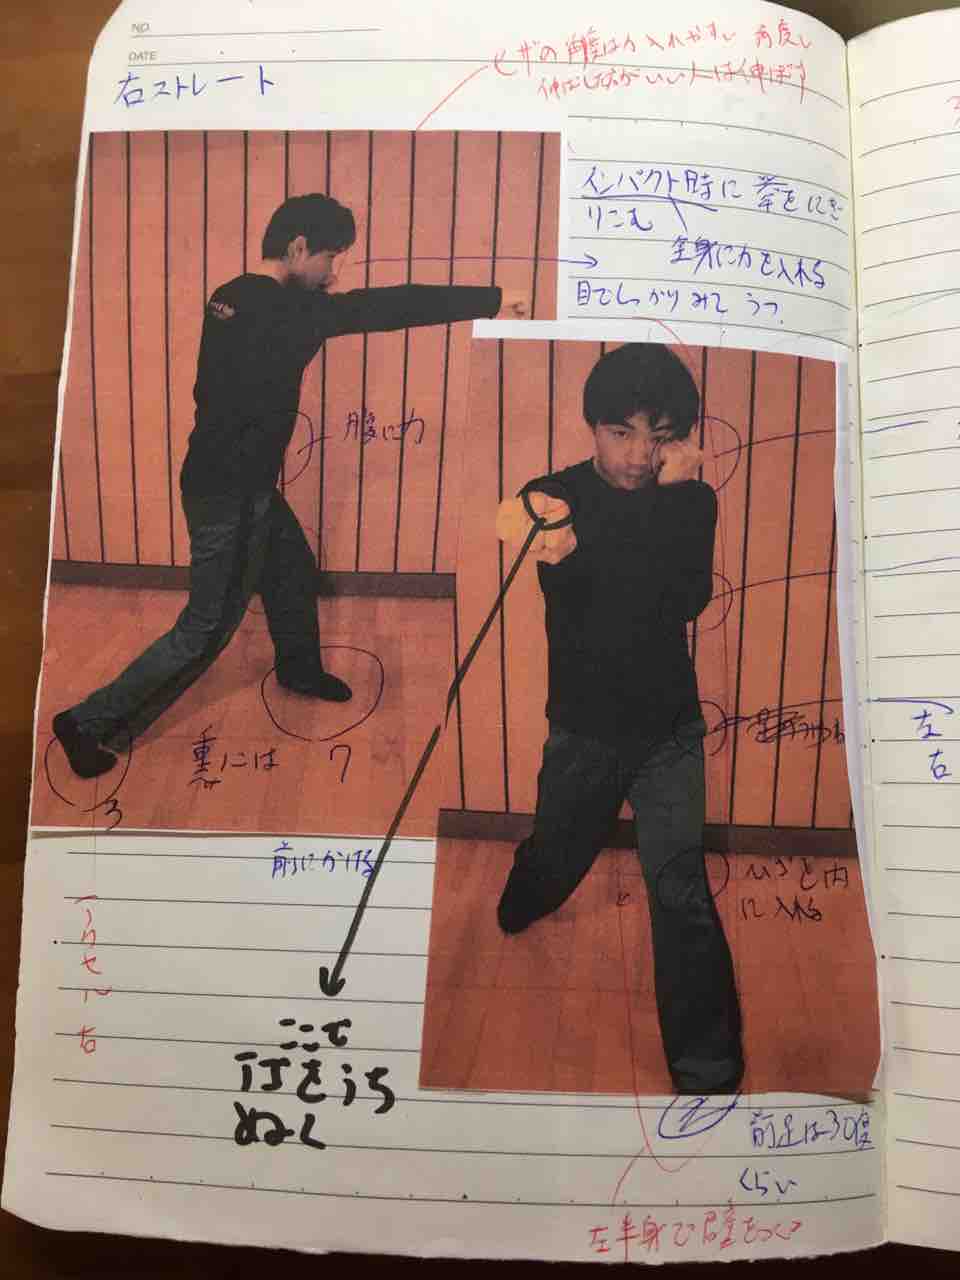 NO.
DATE
右ストレート
ヒザの角度は力入れやすい角度し
伸ばした方がいい人は伸ばす
インパクト時に拳をにぎ
りこむ
全身に力を入れる
目でしっかりみて うつ
腹に力
重心は 7
3
前にかける
ひざを内
に入れる
ここで
打をうち
ぬく
前足は30度
くらい
左半身で壁をつくる
左
右